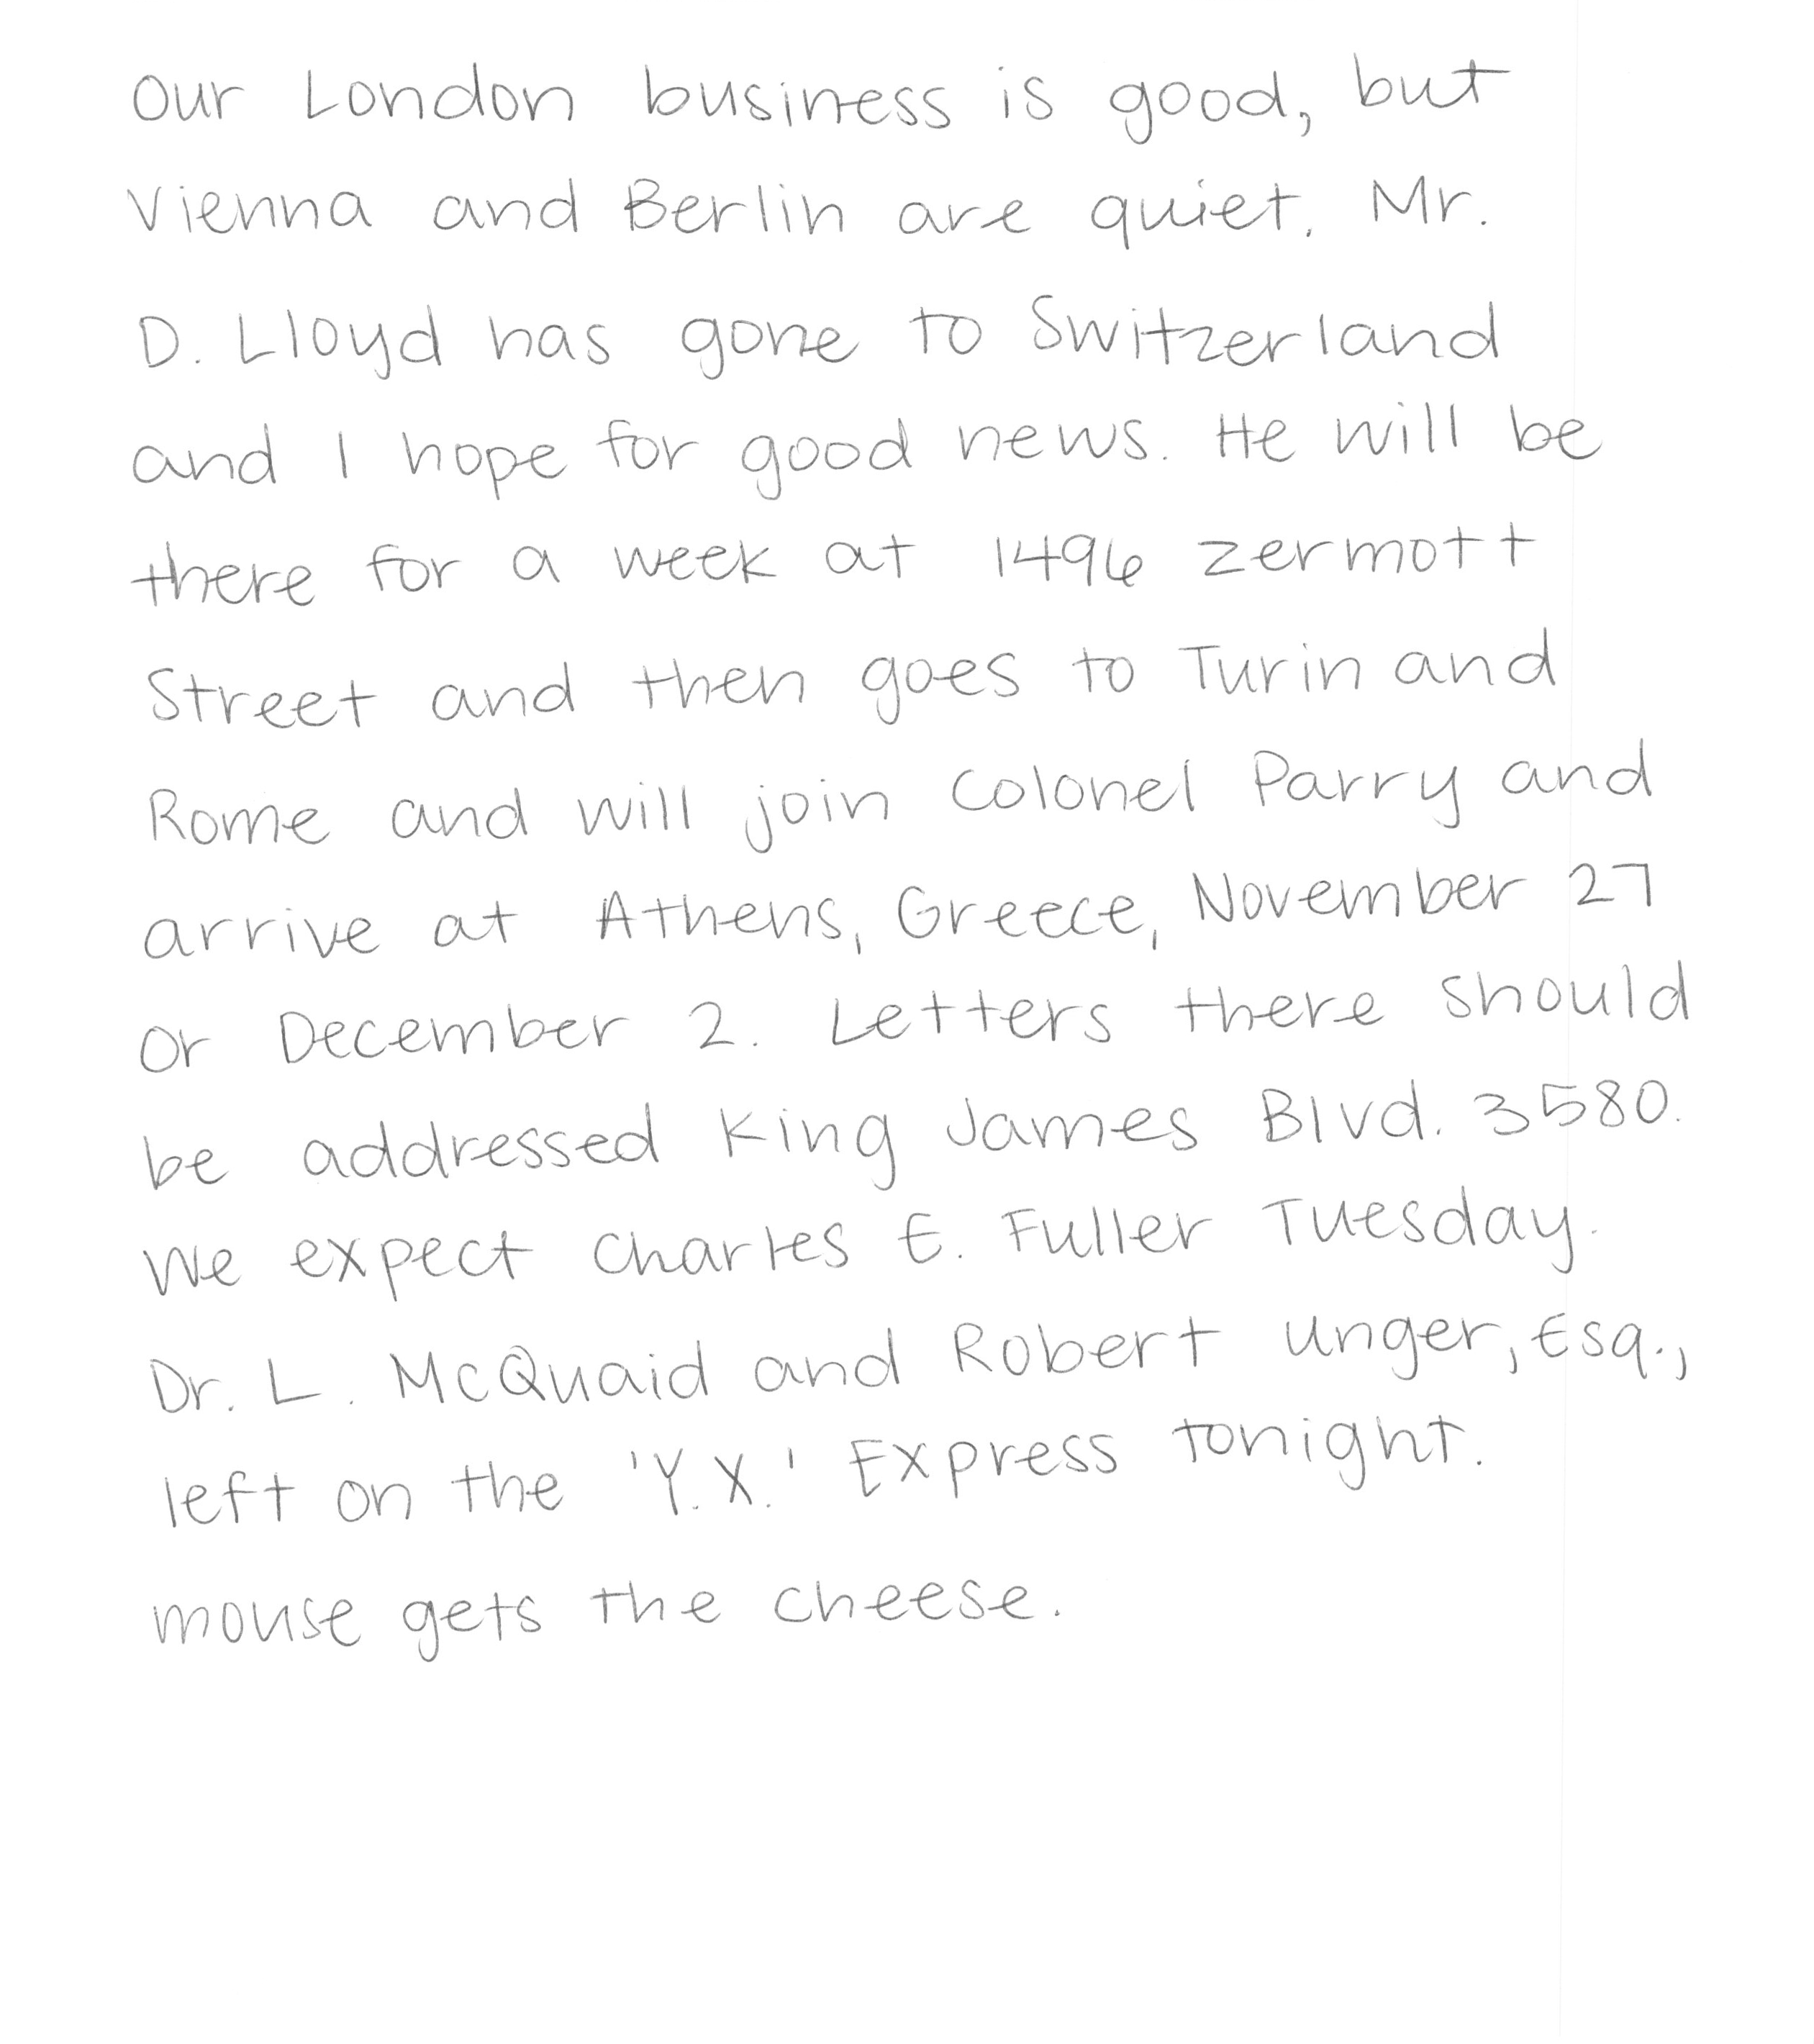 Our London business is good, but
Vienna and Berlin are quiet. Mr.
D. Lloyd has gone to Switzerland
and I hope for good news. He will be
there for a week at 1496 Zermott
Street and then goes to Turin and
Rome and will join Colonel Parry and
arrive at Athens, Greece, November 27
or December 2. Letters there should
be addressed King James Blvd. 3580.
We expect Charles E. Fuller Tuesday.
Dr. L. McQuaid and Robert Unger, Esq.,
left on the 'Y.X.' Express tonight.
mouse gets the cheese.